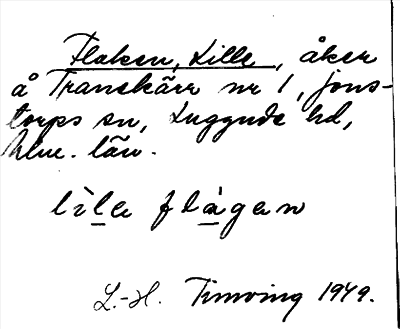 Flaken, Lille, åker
å Tranekärr nr 1, Jons-
torps sn, Luggude hd,
Mlm. län.
lìle flàgen
L.-H. Timving 1949.